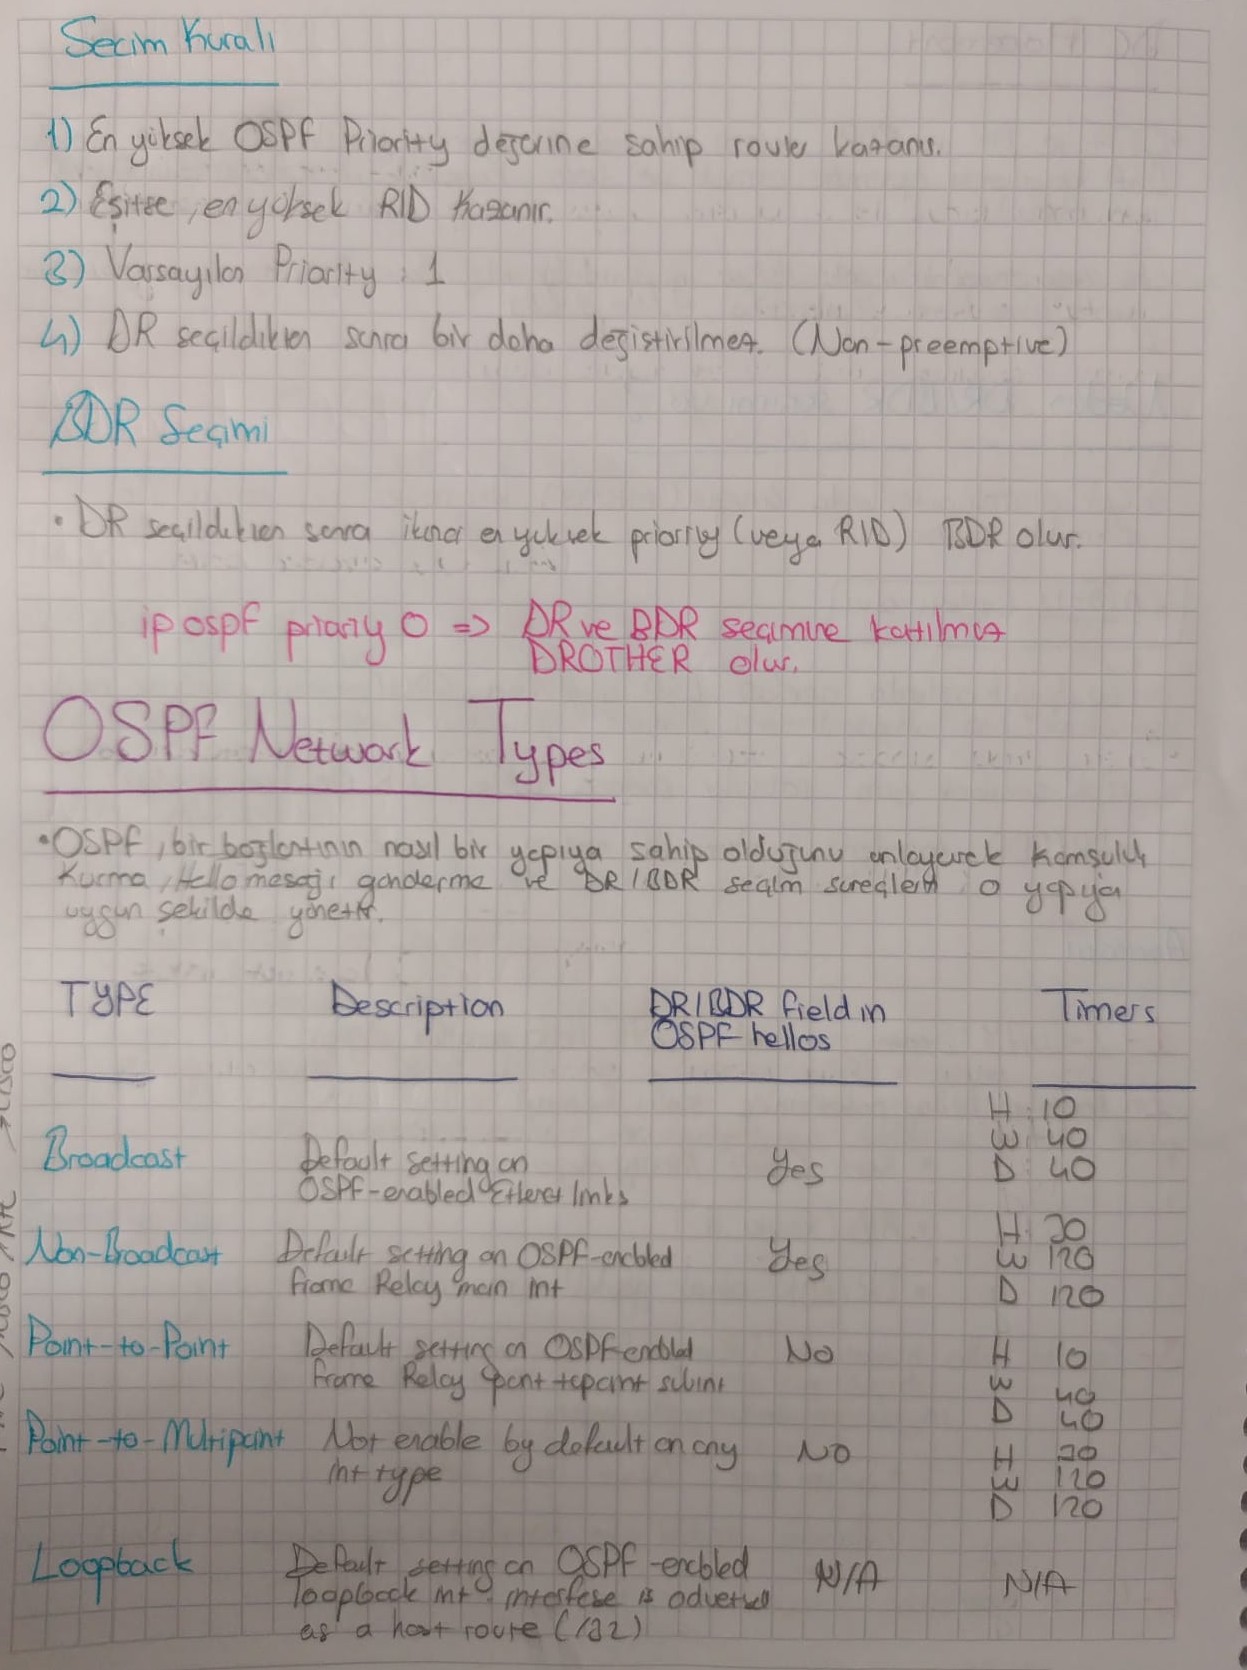 Secim Kuralı
1) En yüksek OSPF Priority değerine sahip router kazanır.
2) Eşitse, en yüksek RID kazanır.
3) Varsayılan Priority : 1
4) DR seçildikten sonra bir daha değiştirilmez. (Non-preemptive)
BDR Seçimi
• DR seçildikten sonra ikinci en yüksek priority (veya RID) BDR olur.
ip ospf priority 0 => DR ve BDR seçimine katılmaz
DROTHER olur.
OSPF Network Types
• OSPF, bir bağlantının nasıl bir yapıya sahip olduğunu anlayarak komşuluk
kurma, Hello mesajı gönderme ve DR/BDR seçim süreçlerini o yapıya
uygun şekilde yönetir.
TYPE Description DR/BDR field in Timers
OSPF hellos
H : 10
W 40
Broadcast Default setting on Yes D : 40
OSPF-enabled Ethernet links
H : 30
Non-Broadcast Default setting on OSPF-enabled Yes W 120
frame Relay main int D 120
Point-to-Point Default setting on OSPF enabled No H 10
frame Relay point topoint subint W 40
D 40
Point-to-Multipoint Not enable by default on any No H 30
int type W 120
D 120
Loopback Default setting on OSPF-enabled N/A N/A
loopback int. interfese is advertised
as a host route (/32)
→ CISCO